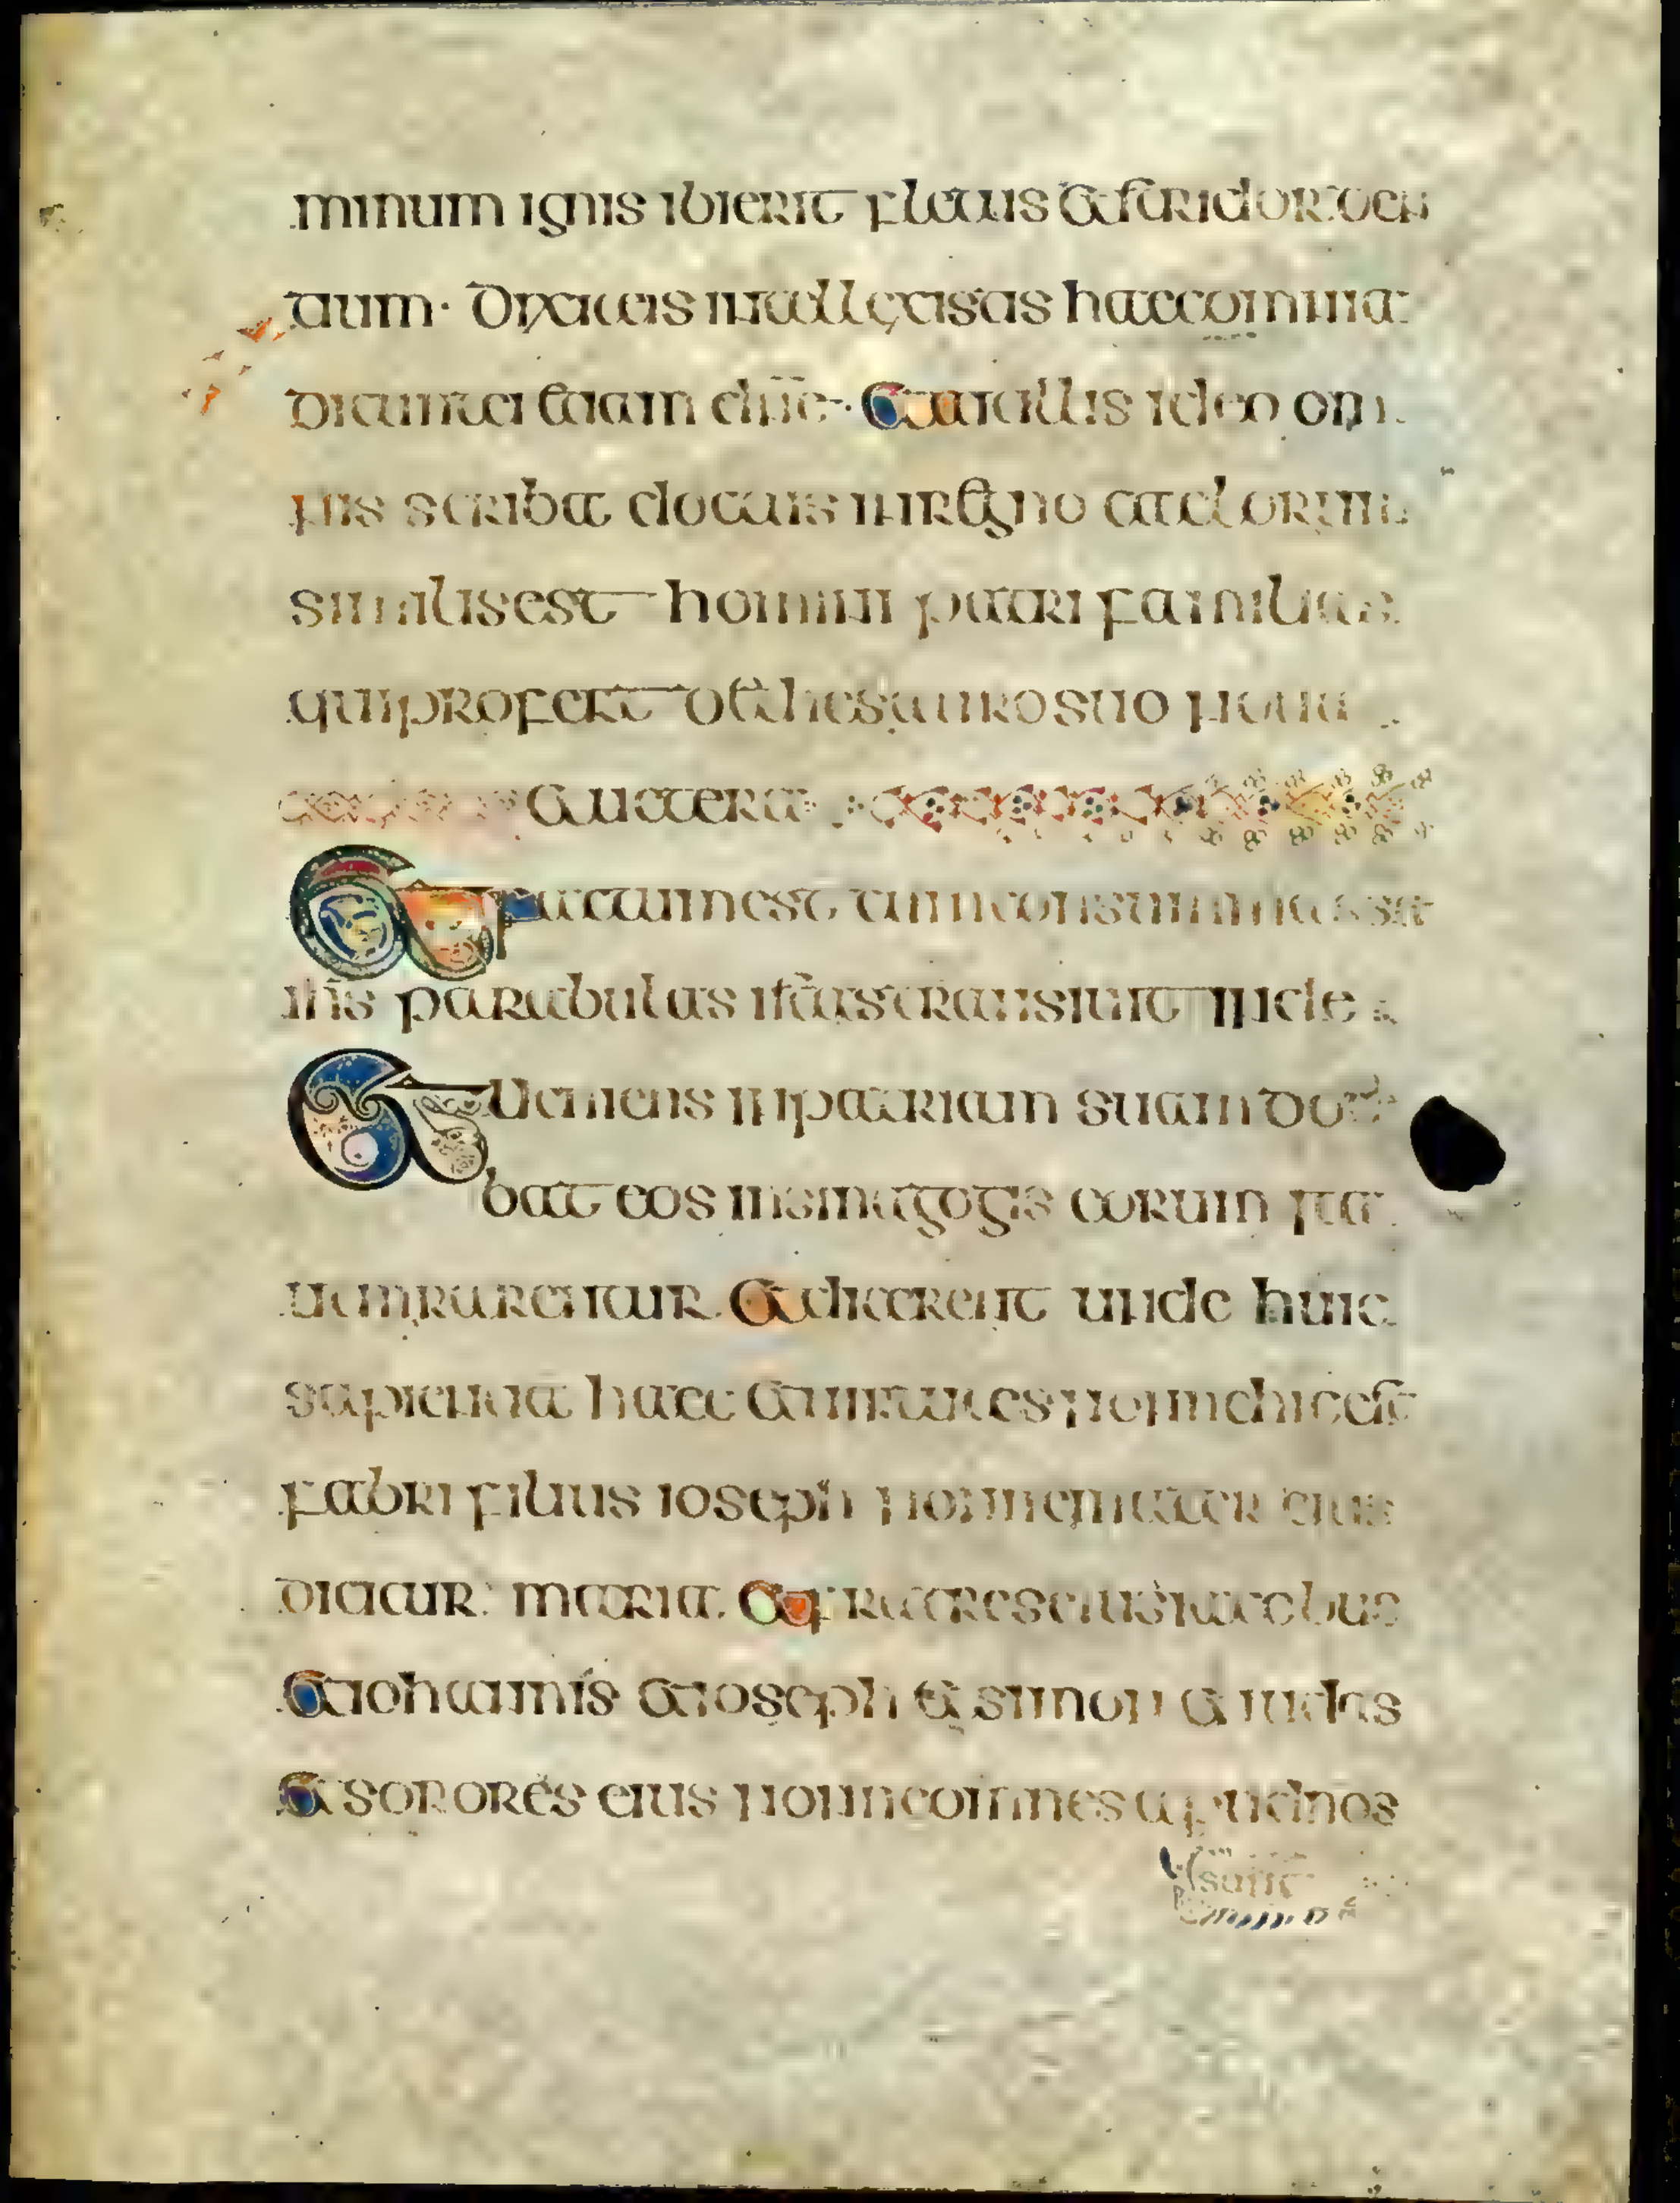 minum ignis ibi erit fletus et stridor den
tium · Dixit eis intellexistis haec omnia
dicunt ei etiam dn̄e · Et ait illis ideo om
nis scriba doctus in regno caelorum
similis est homini patri familias
qui profert de thesauro suo noua
et uetera
Et factum est cum consummasset
ihs parabulas istas transiuit inde
Et ueniens in patriam suam doce
bat eos in sinagogis eorum ita
ut mirarentur. Et dicerent unde huic
sapientia haec et uirtutes nonne hic est
fabri filius ioseph nonne mater eius
dicitur maria. Et fratres eius iacobus
et iohannis et ioseph et simon et iudas
et sorores eius nonne omnes apud nos
sunt